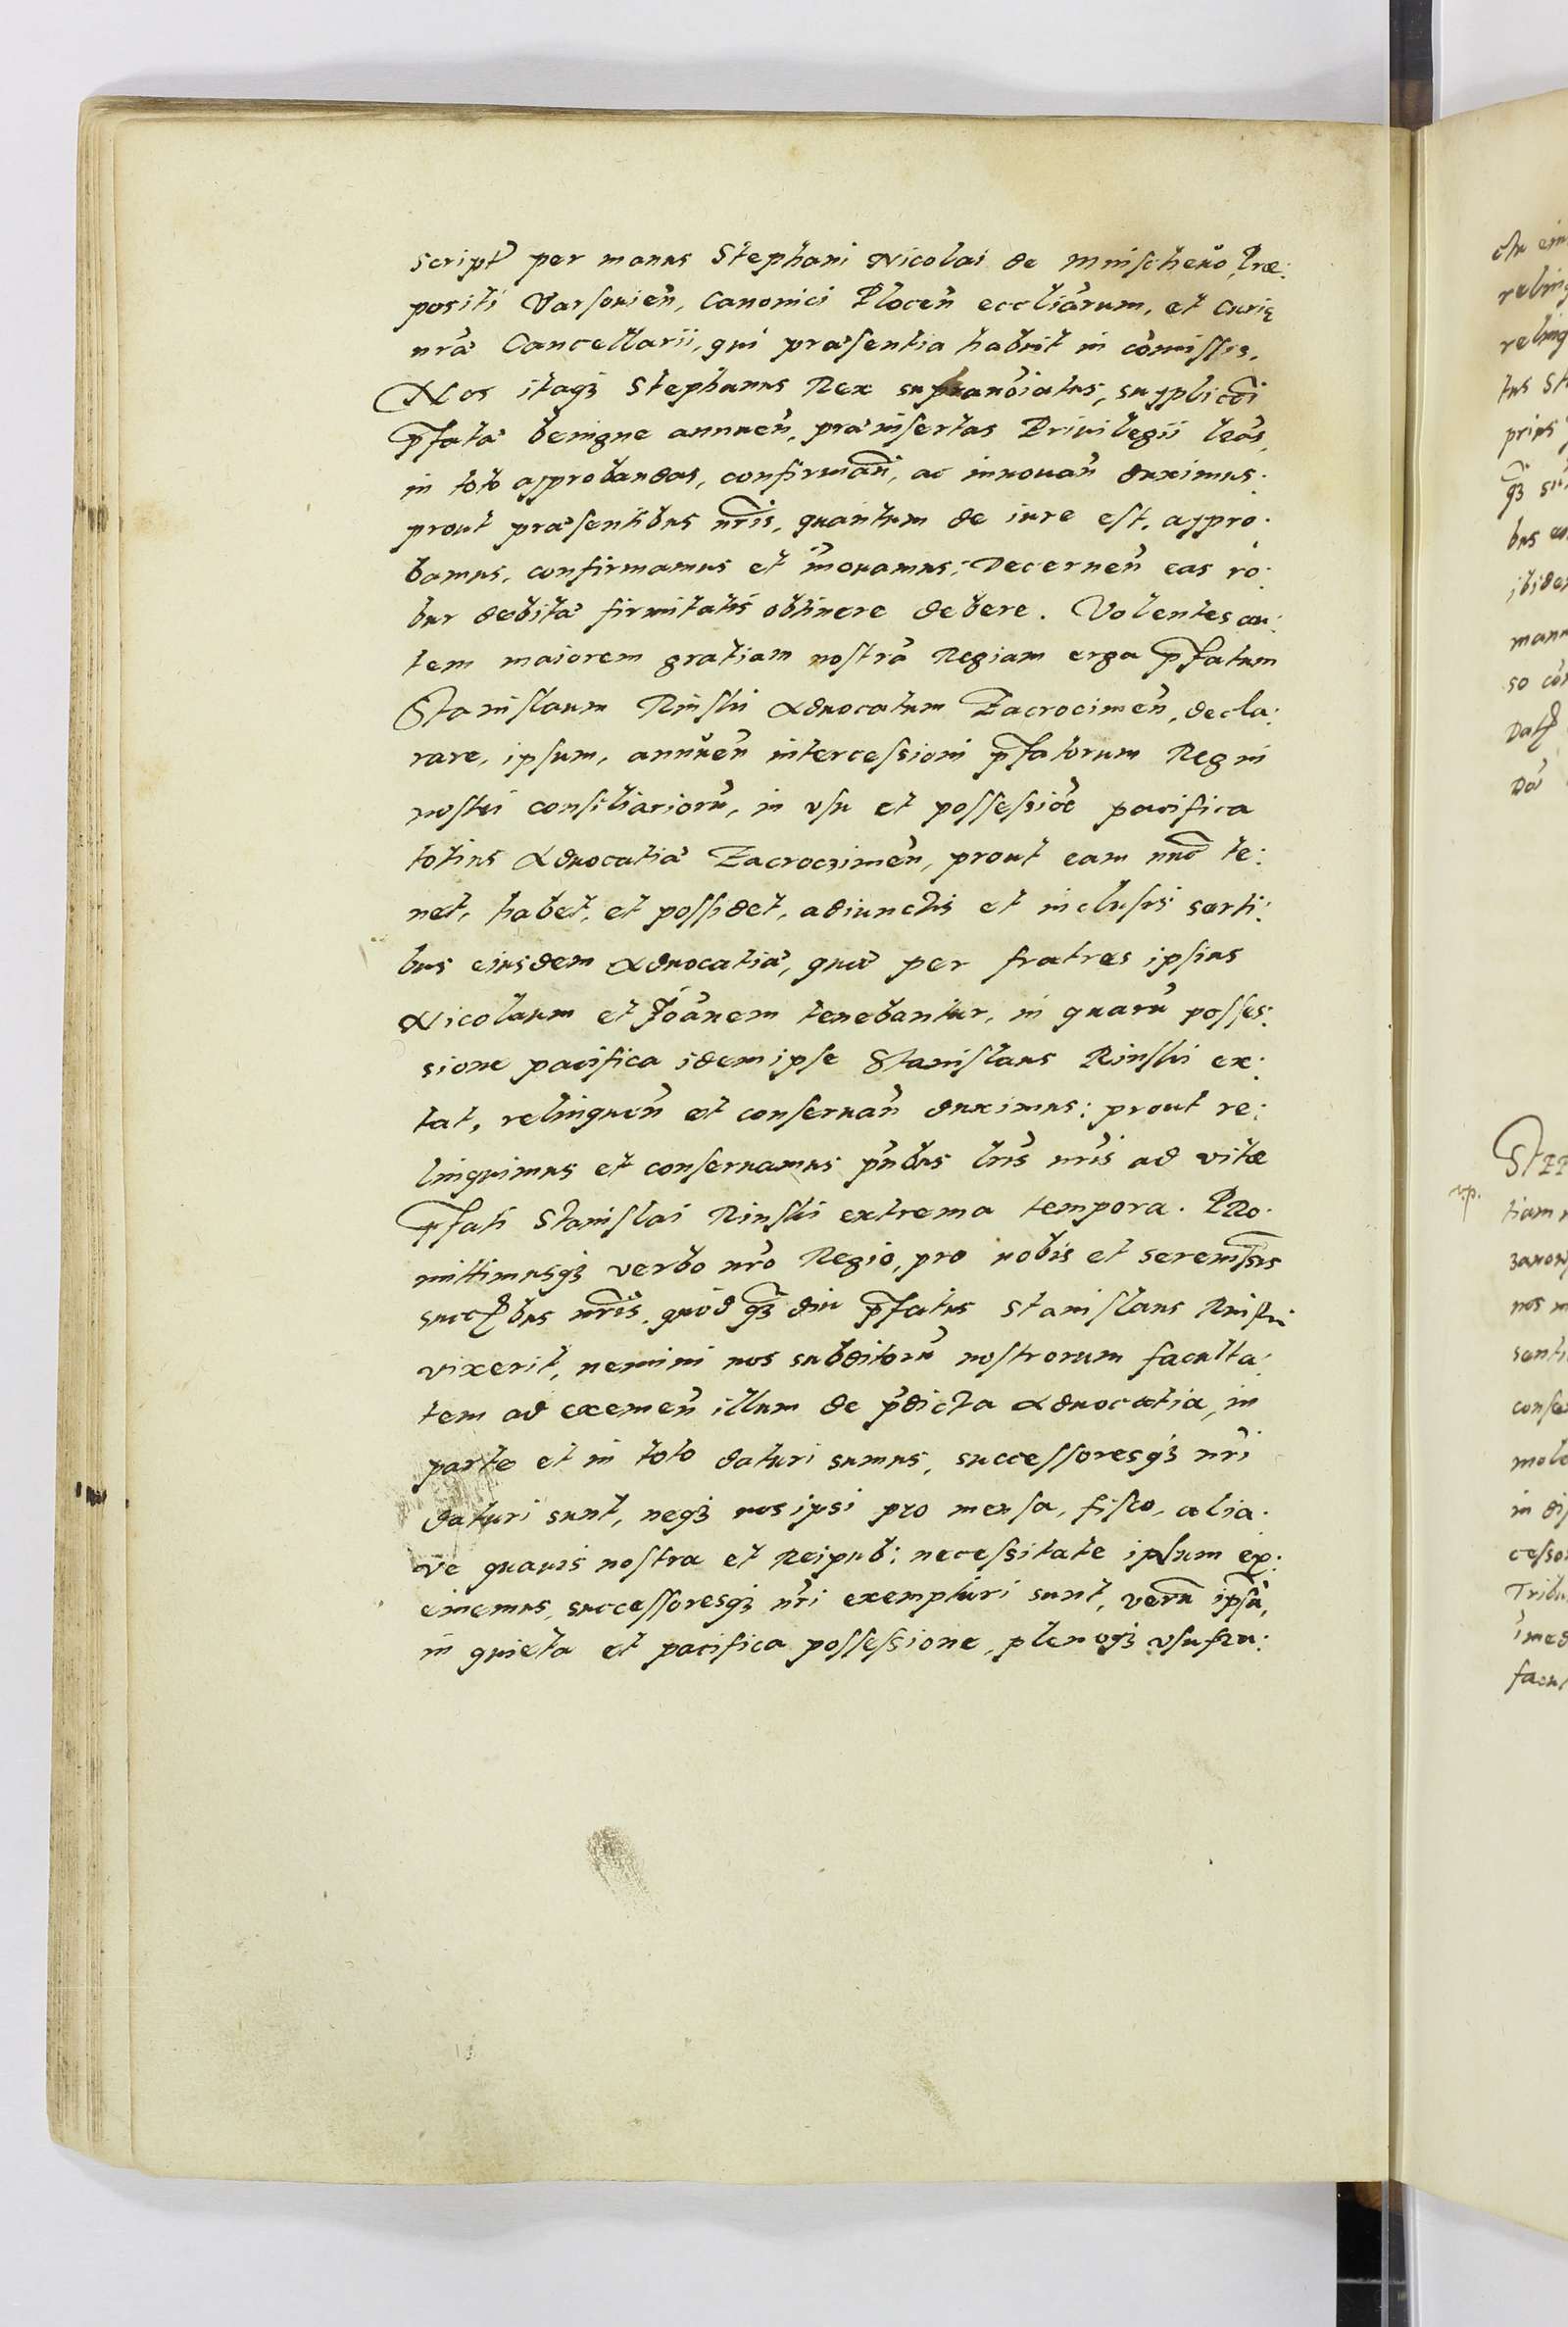 script per manus Stephani Nicolai de Mnischewo, Præ:
positi Varsovien̄, Canonici Plocen̄ eccliarum, et Curię
nrǣ Cancellarii, qui præsentia habuit in com̄issis.
Nos itaqꝫ Stephanus Rex supranōiatus, supplicōi
p̄fatæ benigne annuen̄, præinsertas Privilegii lrās,
in toto approbandas, confirman̄, ac innovan̄ duximus:
prout præsentibus nr̄is, quantum de iure est, appro:
bamus, confirmamus et īnovamus: Decernen̄ eas ro:
bur debitæ firmitatis obtinere debere. Volentes au:
tem maiorem gratiam nostrā Regiam erga p̄fatum
Stanislaum Rinski Advocatum Zacrocimen̄, decla:
rare, ipsum, annŭen̄ intercessioni p̄fatorum Regni
nostri consiliariorū, in usu et possessiōe pacifica
totius Advocatiæ Zacroczimen̄, prout eam nūc te:
net, habet, et possidet, adiunctis et inclusis sorti:
bus eiusdem Advocatiæ, quæ per fratres ipsius
Nicolaum et Joānem tenebantur, in quarū posses:
sione pacifica idem ipse Stanislaus Rinski ex:
tat, relinquen̄ et conservan̄ duximus: prout re:
linquimus et conservamus pn̄tibus lris nr̄is ad vitæ
p̄fati Stanislai Rinski extrema tempora. Pro:
mittimusqꝫ verbo nr̄o Regio, pro nobis et serenis̄s
succ̄bus nr̄is, quōd qꝫ diu p̄fatus Stanislaus Rinski
vixerit, nemini nos subditorū nostrorum faculta:
tem ad eximen̄ illum de p̄dicta Advocatia, in
parte et in toto daturi sumus, successoresqꝫ nr̄i
daturi sunt, neqꝫ nos ipsi pro mensa, fisco, alia:
ve quavis nostra et Reipub: necessitate ipsum ex:
ememus, successoresqꝫ nr̄i exempturi sunt, verū ipsū,
in quieta et pacifica possessione, plenoqꝫ usufru: